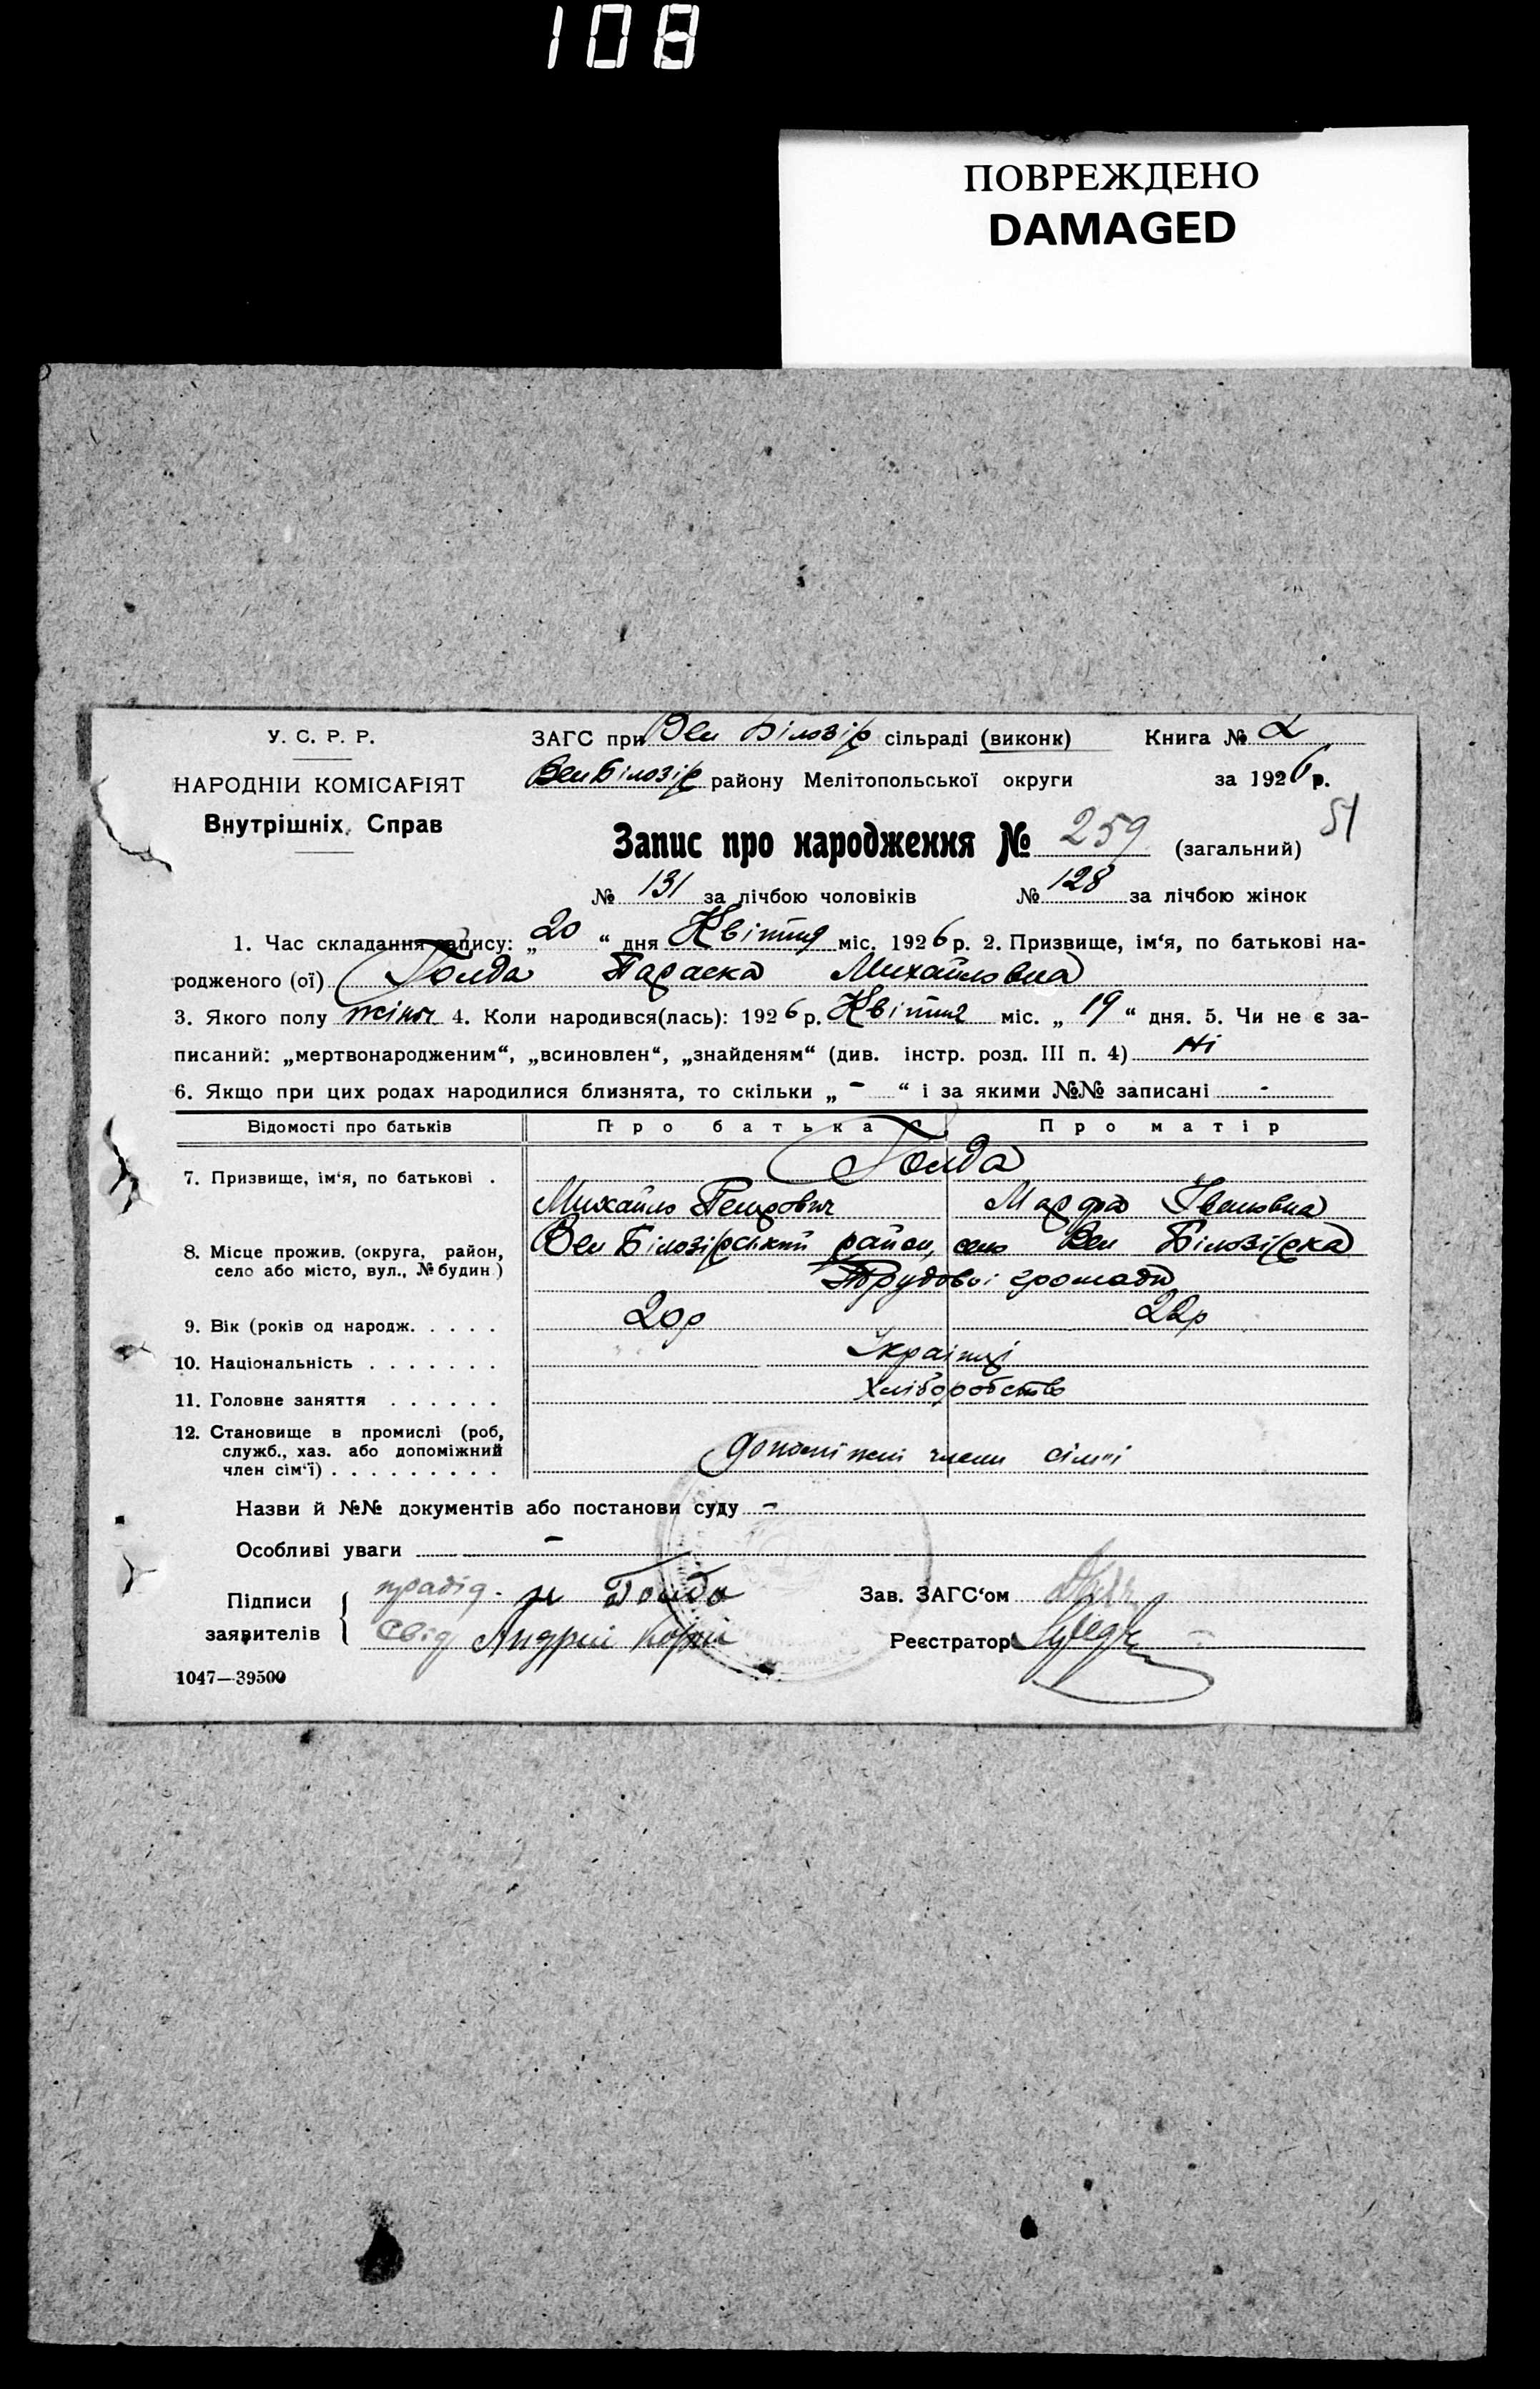 108
ПОВРЕЖДЕНО
DAMAGED
У. С. Р. Р.
НАРОДНІЙ КОМІСАРІЯТ
Внутрішніх Справ
ЗАГС при Вел Білозір сільраді (виконк) Книга № 2
Вел Білозір району Мелітопольської округи за 1926 р.
51
Запис про народження № 259 (загальний)
№ 131 за лічбою чоловіків № 128 за лічбою жінок
1. Час складання запису: „20“ дня Квітня міс. 1926 р. 2. Призвище, ім‘я, по батькові на-
родженого (ої) Гонда Параска Михайловна
3. Якого полу жіноч 4. Коли народився(лась): 1926 р. Квітня міс. „19“ дня. 5. Чи не є за-
писаний: „мертвонародженим“, „всиновлен“, „знайденям“ (див. інстр. розд. III п. 4) Ні
6. Якщо при цих родах народилися близнята, то скільки „ - “ і за якими №№ записані -
Відомості про батьків Про батька Про матір
7. Призвище, ім‘я, по батькові . Гонда
Михайло Петрович Марфа Івановна
8. Місце прожив. (округа, район,
село або місто, вул., № будин) Вел Білозірський район, село Вел Білозірка
Трудової громади
9. Вік (років од народж. . . . . 20р 22р
10. Національність . . . . . . . Українці
11. Головне заняття . . . . . . Хліборобство
12. Становище в промислі (роб,
служб., хаз. або допоміжний
член сім‘ї) . . . . . . . . . допоміжні члени сім'ї
Назви й №№ документів або постанови суду -
Особливі уваги -
Підписи
заявителів
Гонда
свід Андрій
Зав. ЗАГС‘ом
Реєстратор
1047—39500